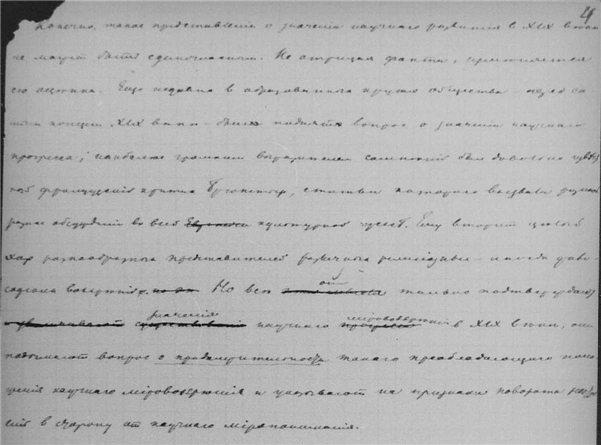 24
Конечно, такое представление о значении научного развития в XIX веке
не может быть единогласным. Не отрицая факта, применяется
его оценка. Еще недавно в образованных кругах общества – перед са
мым концом XIX века – был поднят вопрос о значении научного
прогресса; наиболее громким выразителем сомнений был довольно
французский критик Брюнетьер, статьи которого вызвали
обсуждения во всей Европе культурной Ему вторит целый
хор разнообразных представителей различных религиозных – иногда
воззрений. Но все это только подтверждает
значения научного мировоззрения в XIX веке, они
поднимают вопрос о продолжительности такого преобладающего поло
жения научного мiровоззрения и указывают на признаки поворота
в сторону от научного мiропонимания.